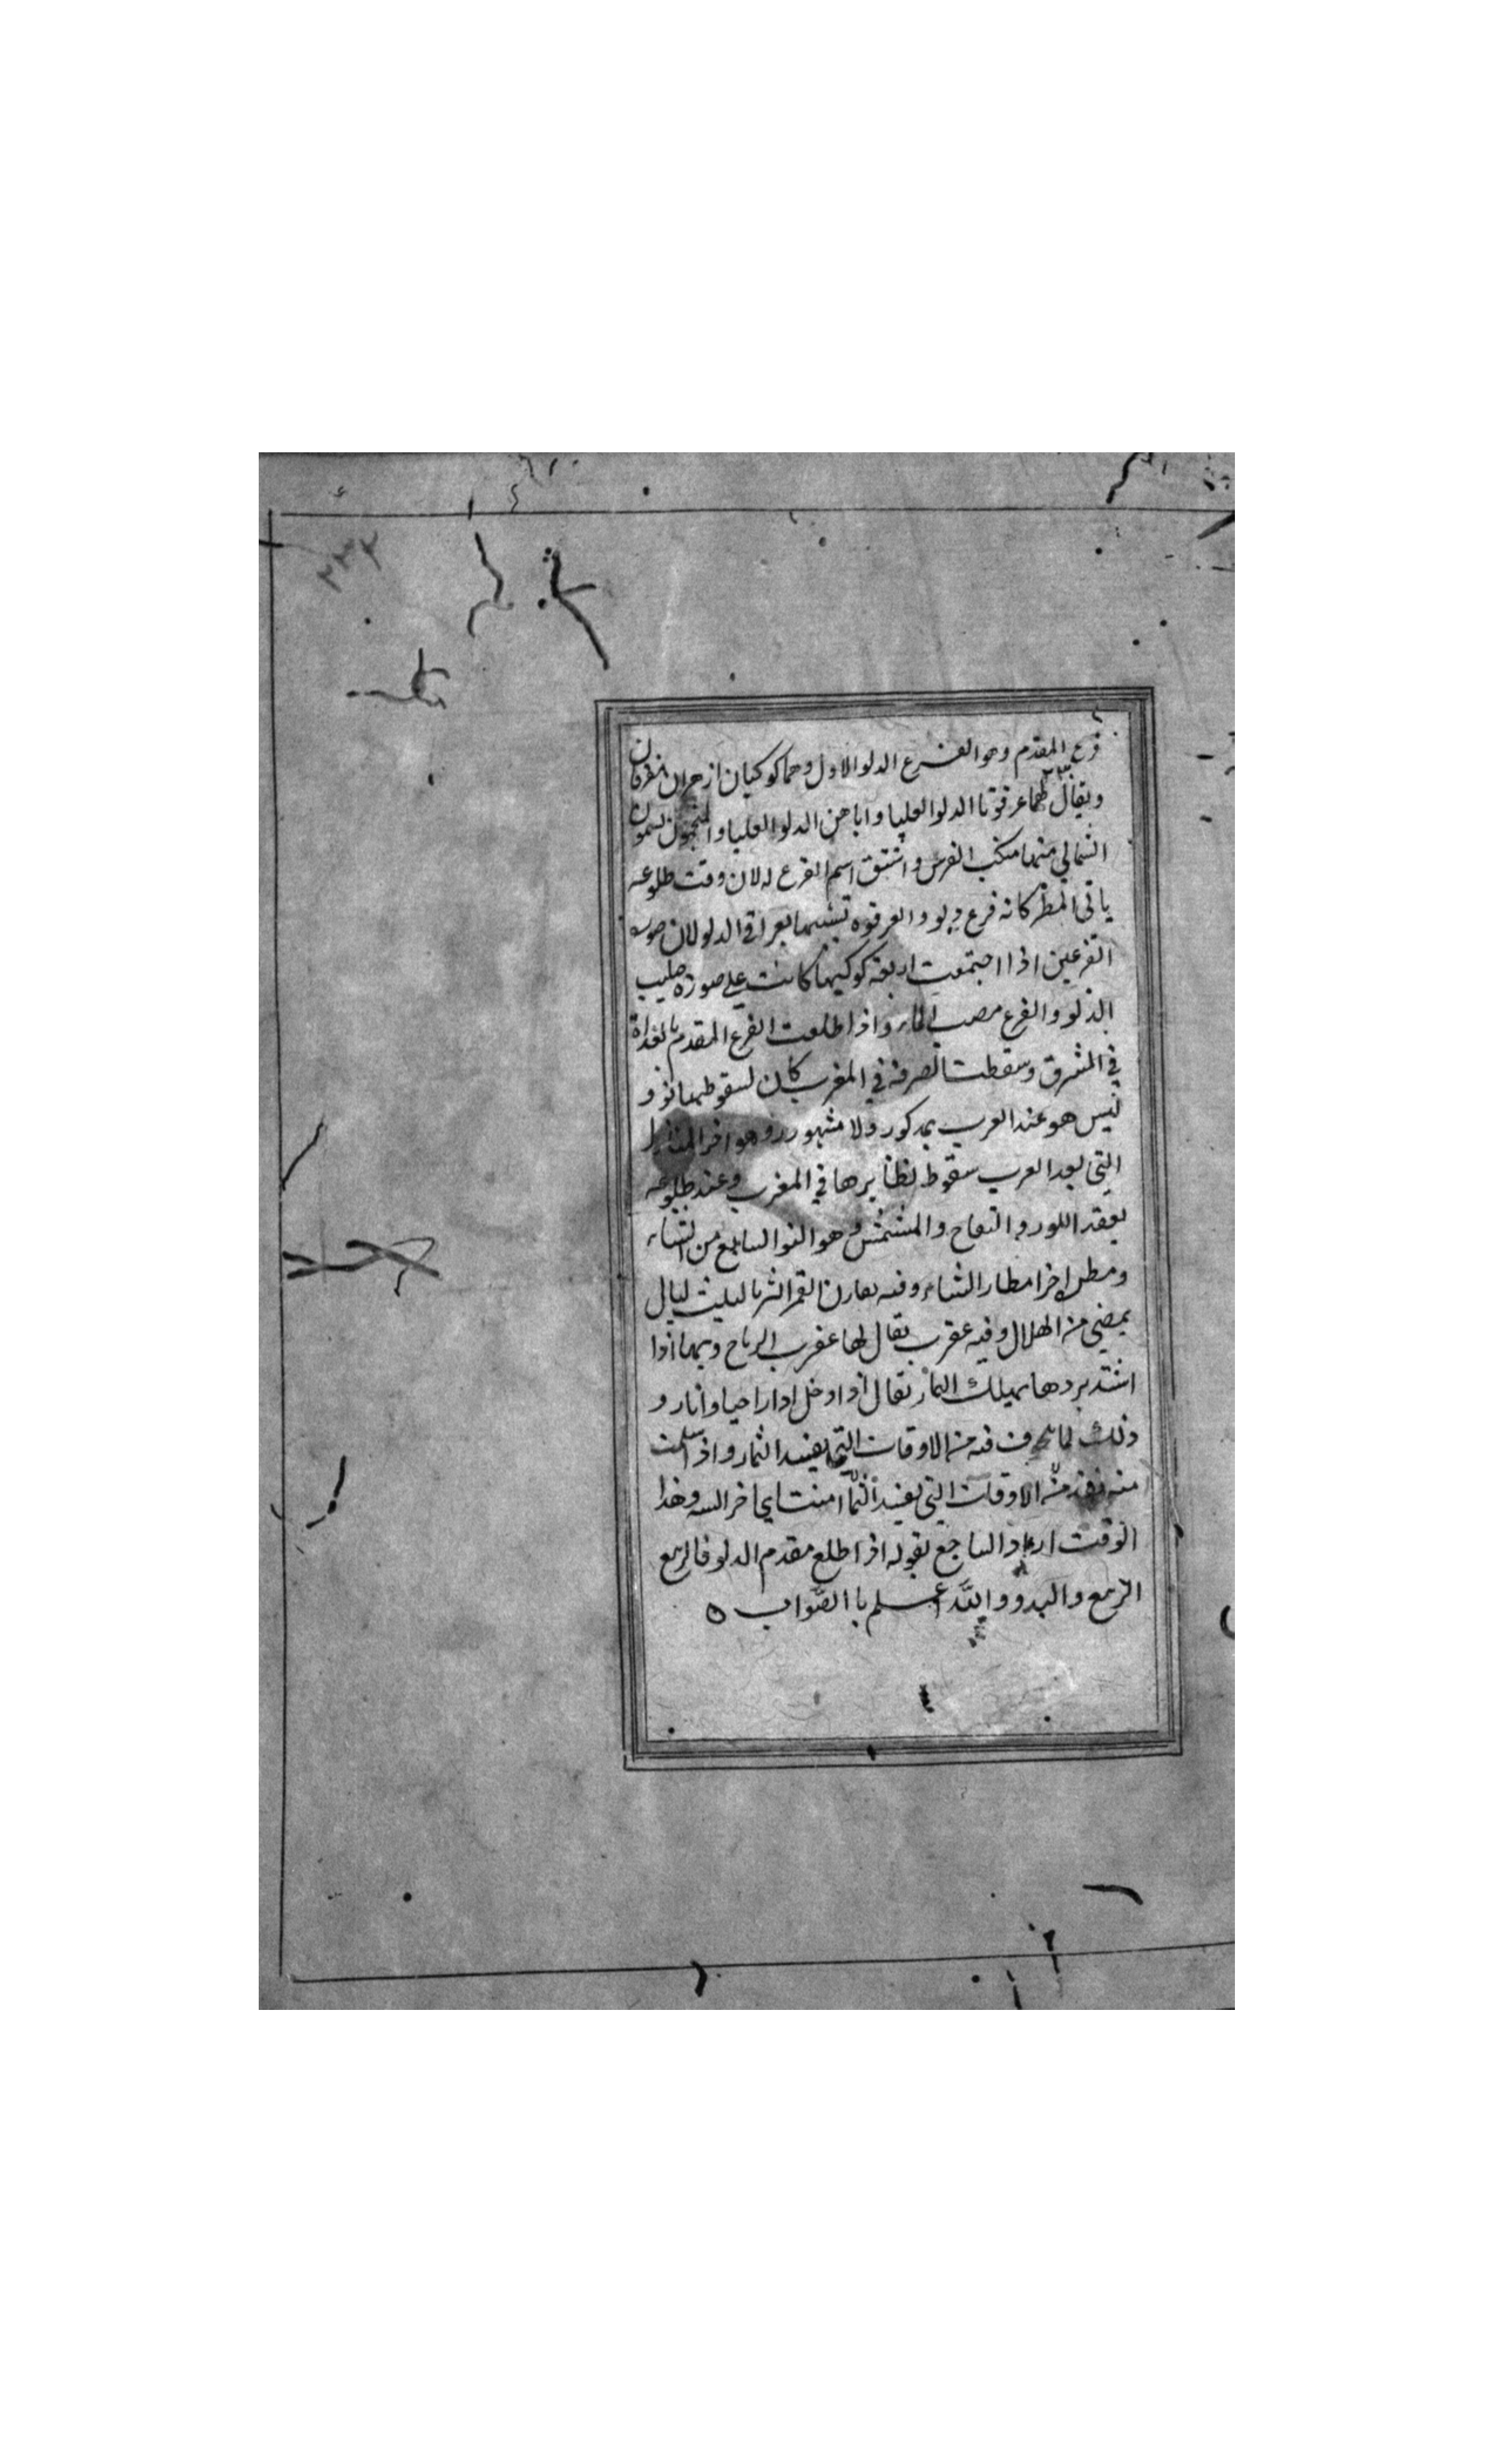 ٢٣٢
فرع المقدم وهو الفرع الدلو الاول وهما كوكبان ازهران مفرقان
ويقال لهما عرقوتا الدلو العليا واباهن الدلو العليا والمنجمون يسمون
الشمالي منهما منكب الفرس واشتق اسم الفرع له لان وقت طلوعه
ياتي المطر كانه فرع دلو والعرقوه تشبيها بعراقي الدلو لان صوره
الفرعين اذا اجتمعت اربعة كوكبها كانت على صورة صليب
الدلو والفرع مصب الماء واذا طلعت الفرع المقدم بالغداة
في المشرق وسقطت الصرفه في المغرب كان لسقوطهما نوء و
ليس هو عند العرب بمذكور ولا مشهور وهو اخر المنازل
التي يعد العرب سقوط نظايرها في المغرب وعند طلوعه
يعقد اللوز و التفاح والمشمش وهو النو السابع من الشتاء
ومطره اخر امطار الشتاء وفيه يقارن القمر الثريا لثلث ليال
يمضي من الهلال وفيه عقرب يقال لها عقرب الرياح وبها اذا
اشتد بردها يهلك الثمار يقال اذا دخل ادار احيا وانار و
ذلك لما فيه من الاوقات التي يفسد الثمار واذا سلمت
منه من الاوقات التي يفسد الثمار امنت الى اخر السنه وهذا
الوقت اراد الساجع بقوله اذا طلع مقدم الدلو فالربع
الربع والبدو والله اعلم با الصواب ه